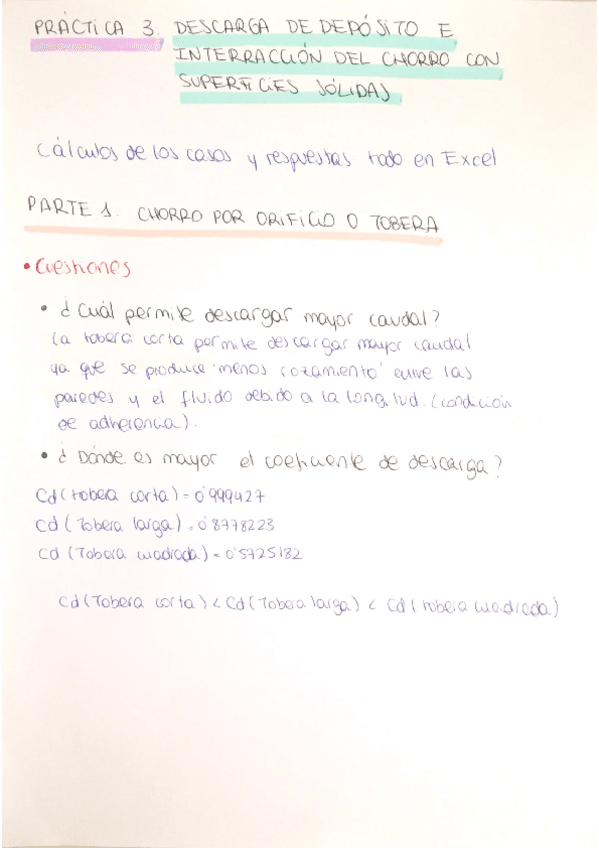 PRÁCTICA 3. DESCARGA DE DEPÓSITO E
INTERRACCIÓN DEL CHORRO CON
SUPERFICIES SÓLIDAS.
Cálculos de los casos y respuestas todo en Excel
PARTE 1. CHORRO POR ORIFICIO O TOBERA
• Cuestiones
• ¿Cuál permite descargar mayor caudal?
La tobera corta permite descargar mayor caudal
ya que se produce 'menos rozamiento' entre las
paredes y el fluido debido a la longitud. (condición
de adherencia).
• ¿Dónde es mayor el coeficiente de descarga?
Cd (tobera corta) = 0'999427
Cd (Tobera larga) = 0'8778223
Cd (Tobera cuadrada) = 0'5725182
Cd (Tobera corta) < Cd (Tobera larga) < Cd (tobera cuadrada)